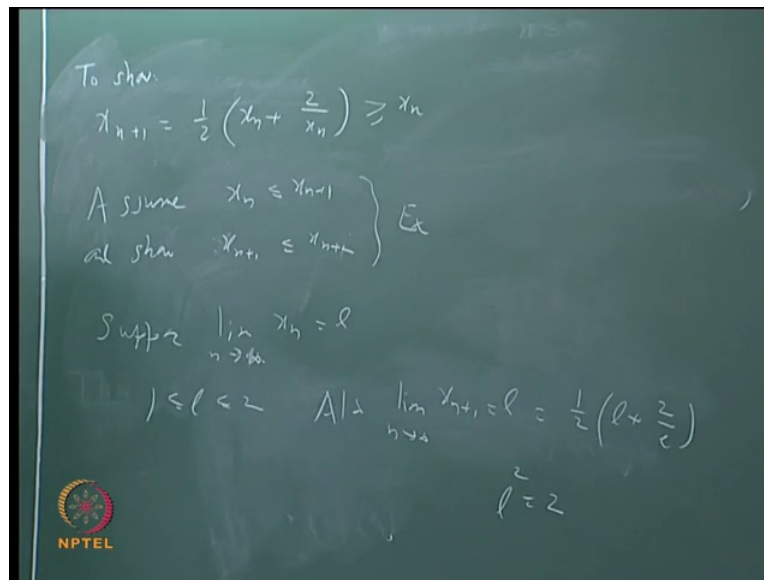 To show
x_{n+1} = 1/2 (x_n + 2/x_n) ≥ x_n
Assume x_n ≤ x_{n+1}
and show x_{n+1} ≤ x_{n+2} } Ex
Suppose lim_{n→∞} x_n = l
1 ≤ l ≤ 2 Also lim_{n→∞} x_{n+1} = l = 1/2 (l + 2/l)
l^2 = 2
NPTEL